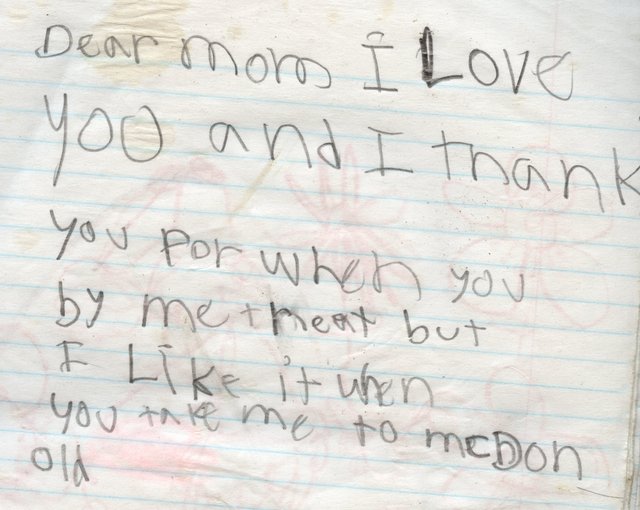 Dear mom I Love
YOO and I thank
you por when you
by me treat but
I Like it when
you take me to mcDon
old